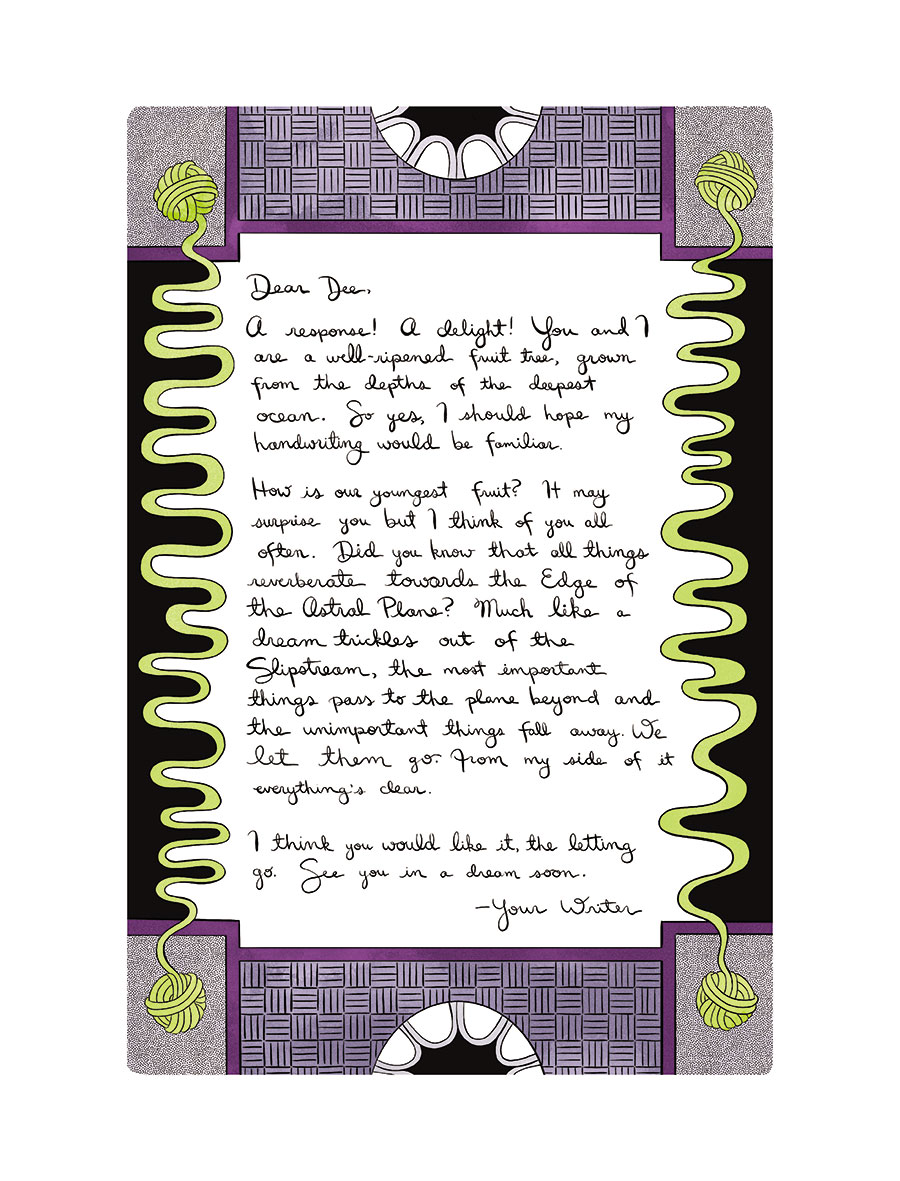 Dear Dee,
A response! A delight! You and I
are a well-ripened fruit tree, grown
from the depths of the deepest
ocean. So yes, I should hope my
handwriting would be familiar.
How is our youngest fruit? It may
surprise you but I think of you all
often. Did you know that all things
reverberate towards the Edge of
the Astral Plane? Much like a
dream trickles out of the
Slipstream, the most important
things pass to the plane beyond and
the unimportant things fall away. We
let them go. From my side of it
everything's clear.
I think you would like it, the letting
go. See you in a dream soon.
-Your Writer